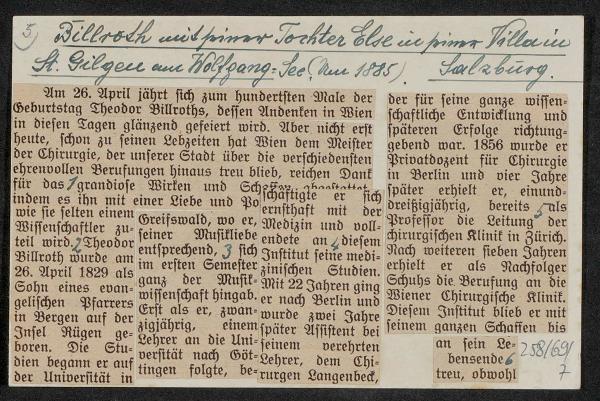 5) Billroth mit seiner Tochter Else in seiner Villa in
St. Gilgen am Wolfgang-See. (Um 1885). Salzburg.
Am 26. April jährt sich zum hundertsten Male der
Geburtstag Theodor Billroths, dessen Andenken in Wien
in diesen Tagen glänzend gefeiert wird. Aber nicht erst
heute, schon zu seinen Lebzeiten hat Wien dem Meister
der Chirurgie, der unserer Stadt über die verschiedensten
ehrenvollen Berufungen hinaus treu blieb, reichen Dank
für das 1 grandiose Wirken und Schaffen abgestattet,
indem es ihn mit einer Liebe und Po
wie sie selten einem
Wissenschaftler zu-
teil wird. 2 Theodor
Billroth wurde am
26. April 1829 als
Sohn eines evan-
gelischen Pfarrers
in Bergen auf der
Insel Rügen ge-
boren. Die Stu-
dien begann er auf
der Universität in
Greifswald, wo er,
seiner Musikliebe
entsprechend, 3 sich
im ersten Semester
ganz der Musik-
wissenschaft hingab.
Erst als er, zwan-
zigjährig, einem
Lehrer an die Uni-
versität nach Göt-
tingen folgte, be-
schäftigte er sich
ernsthaft mit der
Medizin und voll-
endete an 4 diesem
Institut seine medi-
zinischen Studien.
Mit 22 Jahren ging
er nach Berlin und
wurde zwei Jahre
später Assistent bei
seinem verehrten
Lehrer, dem Chi-
rurgen Langenbeck,
der für seine ganze wissen-
schaftliche Entwicklung und
späteren Erfolge richtung-
gebend war. 1856 wurde er
Privatdozent für Chirurgie
in Berlin und vier Jahre
später erhielt er, einund-
dreißigjährig, bereits 5 als
Professor die Leitung der
chirurgischen Klinik in Zürich.
Nach weiteren sieben Jahren
erhielt er als Nachfolger
Schuhs die Berufung an die
Wiener Chirurgische Klinik.
Diesem Institut blieb er mit
seinem ganzen Schaffen bis
an sein Le-
bensende 6
treu, obwohl
258/69/
7